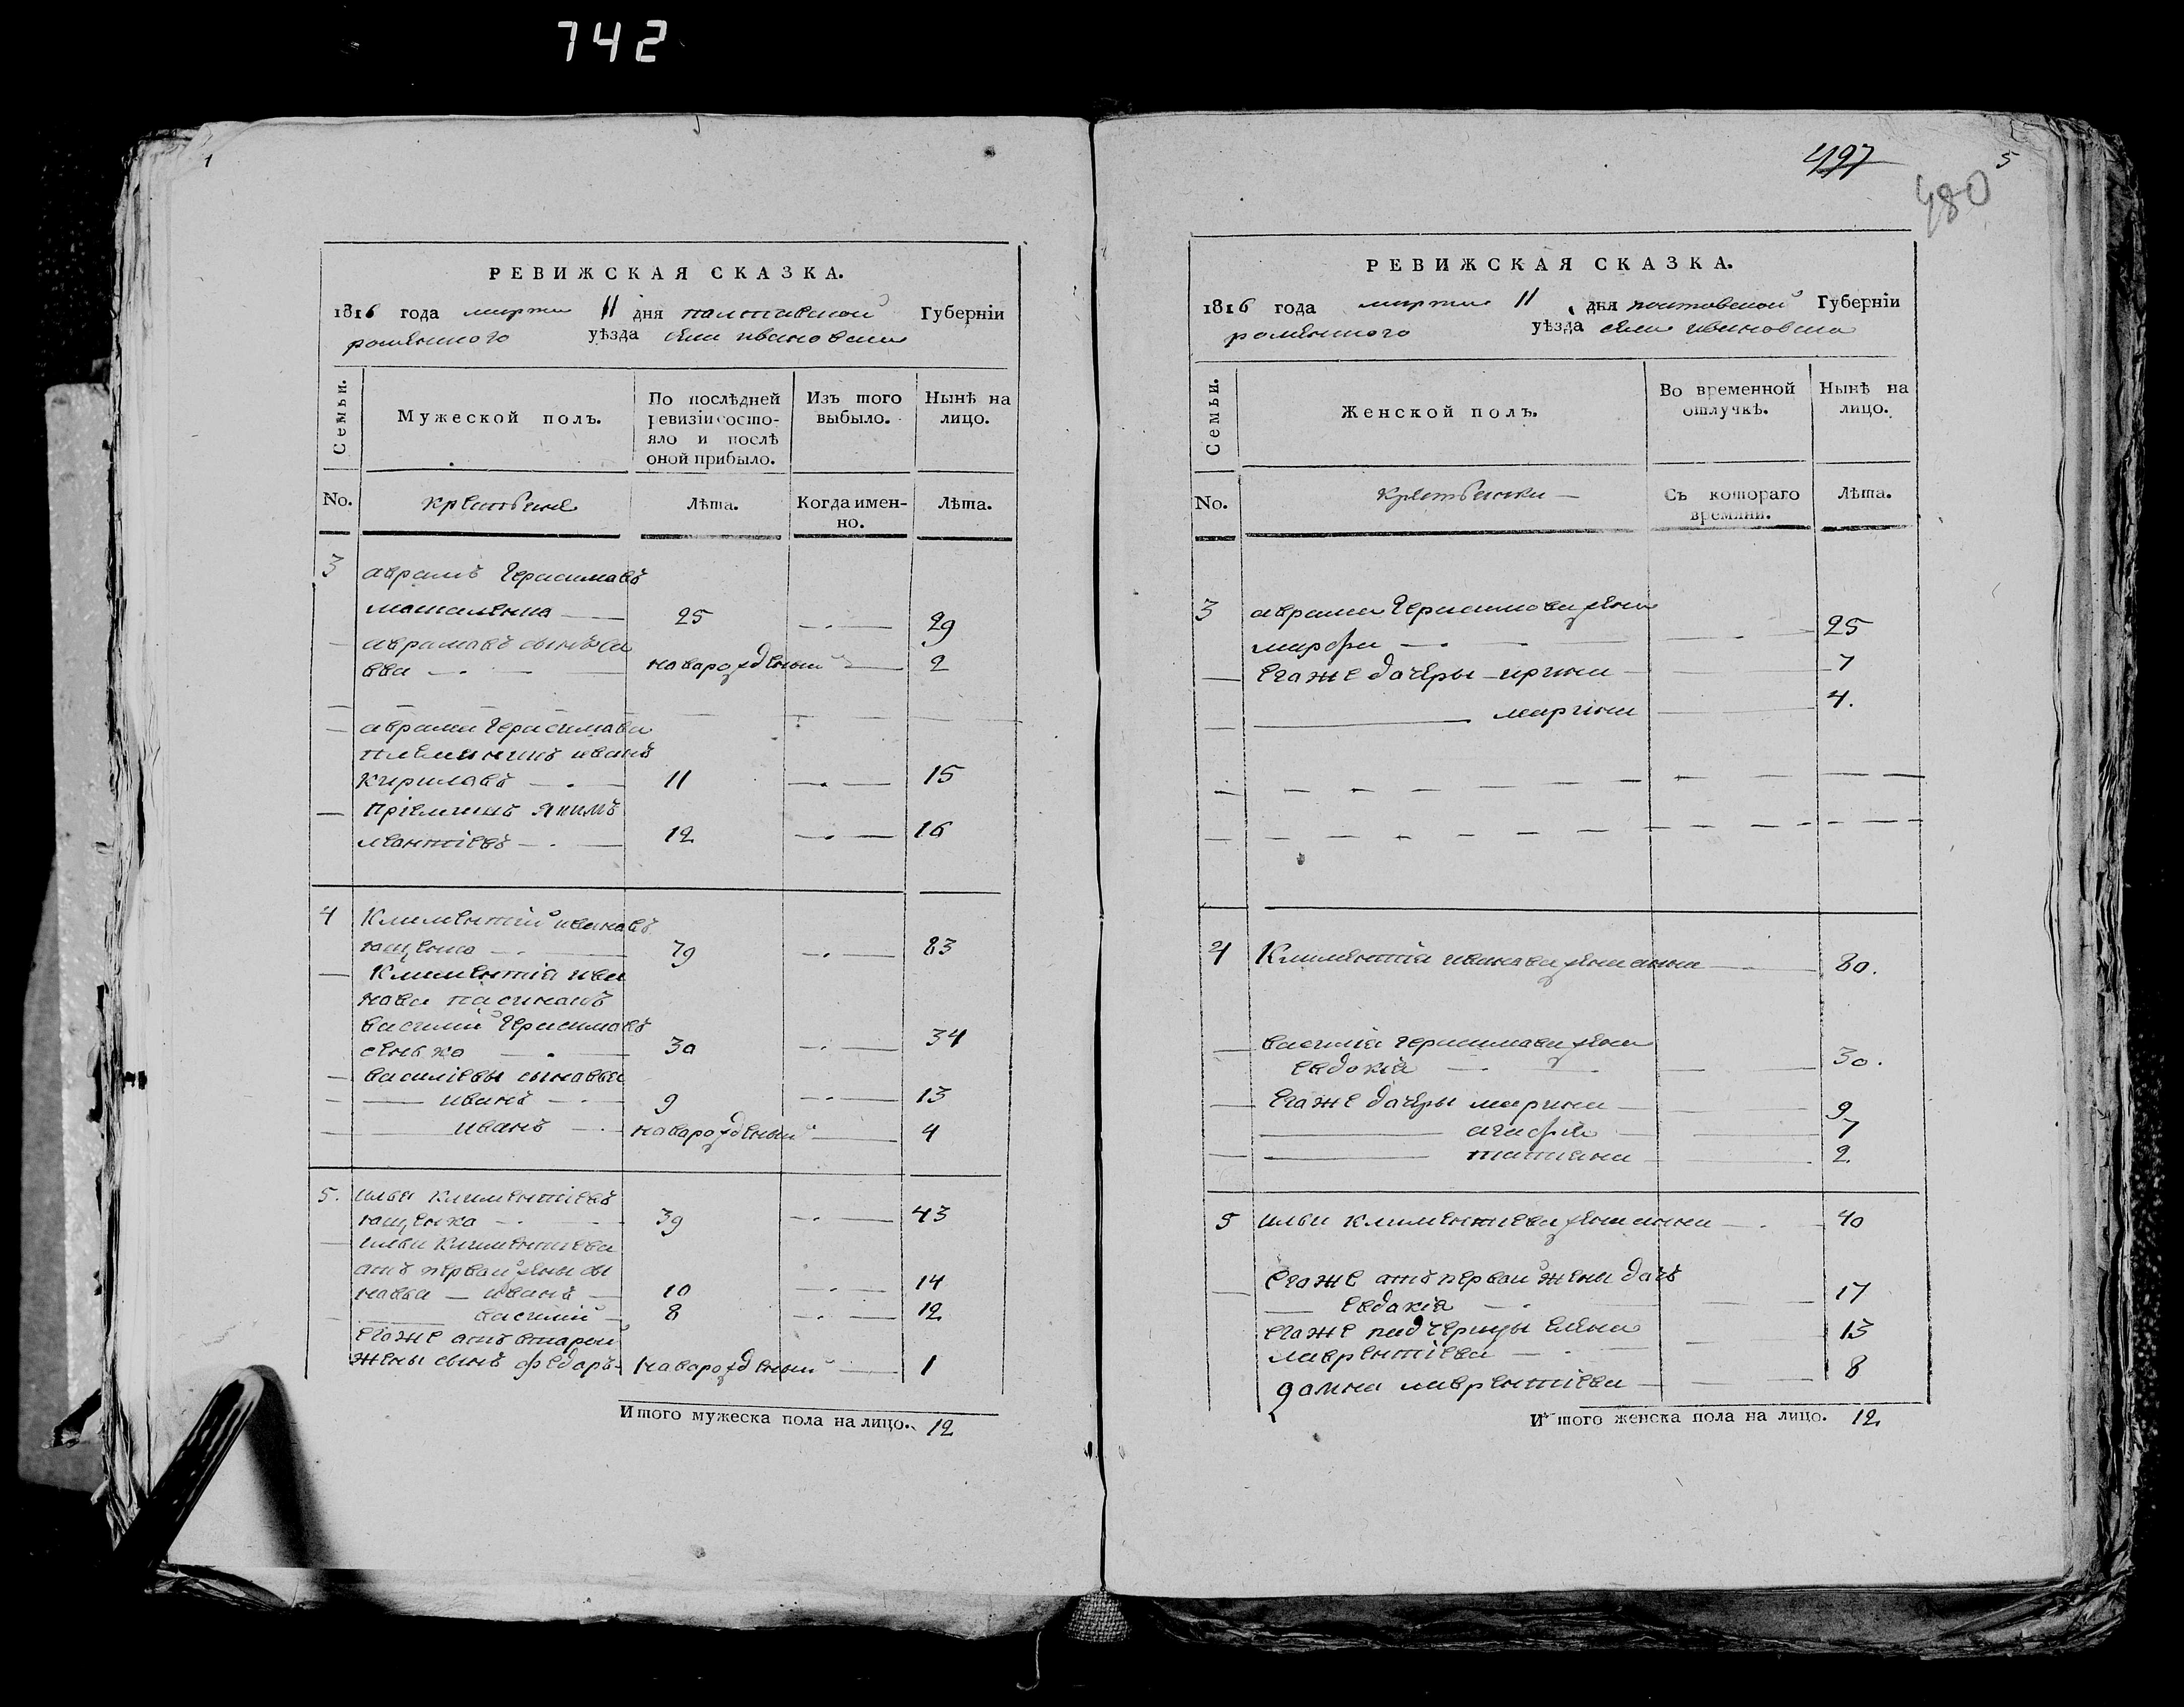 742
1
РЕВИЖСКАЯ СКАЗКА.
1816 года марта 11 дня палтавской Губернїи
роменского уѣзда села ивановки
Семьи.
Мужеской полъ.
По послѣдней
ревизїи состо-
яло и послѣ
оной прибыло.
Изъ того
выбыло.
Нынѣ на
лицо.
No.
крестьяне
Лѣта.
Когда имен-
но.
Лѣта.
3 аврамъ Герасимавъ
25 29
аврамавъ сынъ са
ва наварожденный 2
аврама Герасимава
племянникъ иванъ
Кирилавъ 11 15
прїемишъ якимъ
леантїевъ 12 16
4 Климентїй ивановъ
ющенко 79 83
Климентїя ива
нова пасинакъ
василий Герасимавъ
сенько 30 34
василїевы сынавья
иванъ 9 13
иванъ наварожденный 4
5. илья климентїевъ
ющенка 39 43
ильи климентїева
атъ первай жены сы
навья — иванъ 10 14
василїй 8 12
егоже атъ втарой
жены сынъ федаръ наварожденный 1
Итого мужеска пола на лицо. 12
497
480
5
РЕВИЖСКАЯ СКАЗКА.
1816 года марта 11 дня Губернїи
роменского уѣзда села ивановки
Семьи.
Женской полъ.
Во временной
отлучкѣ.
Нынѣ на
лицо.
No.
крестьянки
Съ котораго
времяни.
Лѣта.
3 аврама Герасимова жена
марфа 25
егоже дочеры ирина 7
4.
4 Климентїя иванава жена анна 80.
василїя герасимава жена
евдокїя 30.
егоже дочеры марина 9
агафїя 7
татїана 2
5 ильи климентиева жена анна 40
егоже атъ первай жены дачъ
евдакїя 17
егоже падчерицы елена
лаврентїева 13
домна лаврентїева 8
Итого женска пола на лицо. 12